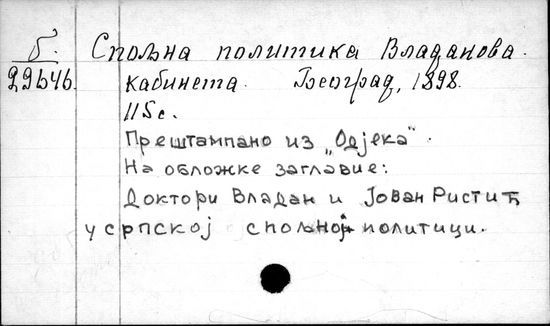 б.
29646.
Спољна политика Владанова
кабинета. Београд, 1898.
115 с.
Прештампано из „Одјека".
На обложке заглавие:
Доктори Владан и Јован Ристић
у српској спољној политици.